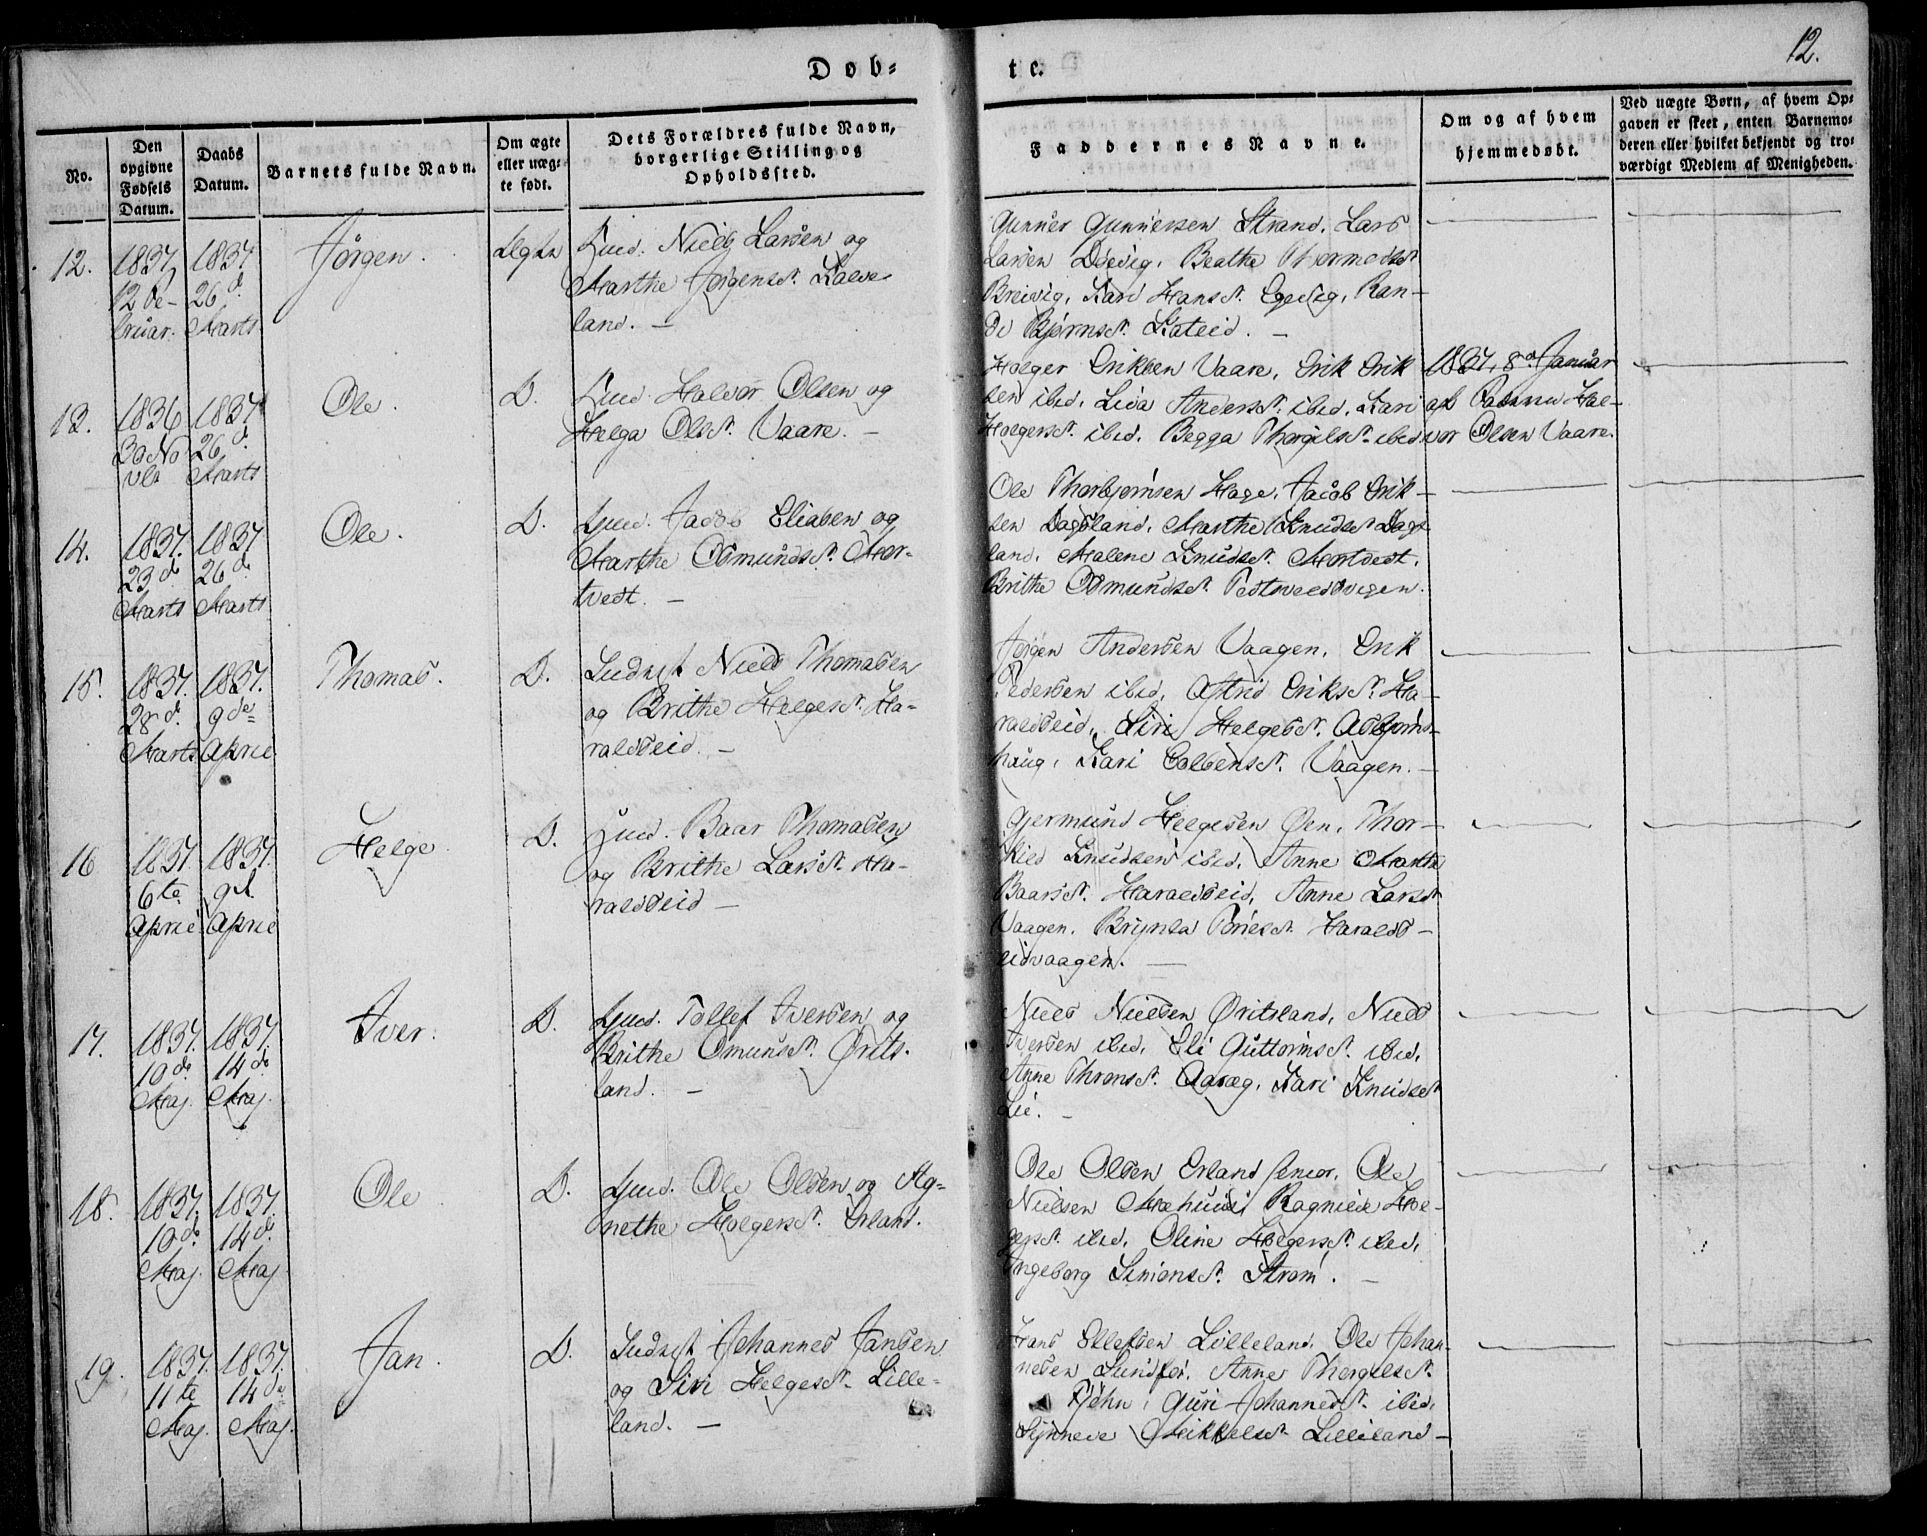 Døb-
te.
12.
No.
Den opgivne Fødsels Datum.
Daabs Datum.
Barnets fulde Navn.
Om ægte eller uægte født.
Dets Forældres fulde Navn, borgerlige Stilling og Opholdssted.
Faddernes Navne.
Om og af hvem hjemmedøbt.
Ved uægte Børn, af hvem Op-
gaven er skeet, enten Barnemo-
deren eller hvilket bekjendt og tro-
værdigt Medlem af Menigheden.
12.
1837,
12 Fe-
bruar.
1837
26 d.
Marts
Jørgen.
Ægte
Niels Larsen og
Marthe Jørgensd.
land. —
Gunner Gunnersen Strand, Lars
Larsen Beathe Thormodsd.
Breivig, Kari Hansd. Ran-
di Bjørnsd.
13.
1836
30 No
vbr
1837
26 d.
Marts
Ole.
D.
Halvor Olsen og
Helga Olsd. Vaare. —
Holger Eriksen Vaare, Erik Erik
sen ibid, Lisa Andersd. ibid, Kari
Holgersd. ibid, Begga Thorgilsd. ibid
1837, 8d Januar
af Hal-
vor Olsen Vaare.
14.
1837.
23 d
Marts
1837
26 d.
Marts
Ole.
D.
Gmd. Jacob Eliasen og
Marthe Osmundsd. Mor-
tvedt. —
Ole Thorbjørnsen Hage, Jacob Erik-
sen Dagsland, Marthe Knudsd. Dags
land, Malene Knudsd. Mortvedt,
Brithe Osmundsd.
15.
1837.
28 d.
Marts
1837.
9 de
April
Thomas.
D.
Niels Thomasen
og Brithe Helgesd. Ha-
raldseid. —
Jørgen Andersen Vaagen, Erik
Pedersen ibid, Astrid Eriksd. Ha-
raldseid, Siri Helgesd. Asbjørns-
haug, Kari Vaagen. —
16
1837.
6te
April
1837.
9d.
April
Helge
D.
Gmd. Baar Thomasen
og Brithe Larsd. Ha-
raldseid —
Gjermund Helgesen Øen, Thor-
kild Knudsen ibid, Anne Marthe
Baarsd. Haraldseid, Anne Larsd
Vaagen, Haralds-
eidvaagen. —
17.
1837.
10 d.
Maj.
1837.
14 d.
Maj.
Iver.
D.
Gmd. Tollef Iversen og
Brithe Omunsd. Ørits-
land. —
Niels Nielsen Øritsland, Niels
Iversen ibid, Eli Guttormsd. ibid,
Anne Kari Knudsd.
Lie. —
18.
1837.
10 d.
Maj.
1837.
14 d.
Maj.
Ole
D.
Gmd. Ole Olsen og Ag-
nethe Holgersd. Erland.
Ole Olsen Erland senior, Ole
Nielsen Ragnild Hol-
gersd. ibid, Oline Holgersd. ibid,
Ingeborg Simonsd. Strøm. —
19.
1837.
11 te
Maj.
1837.
14 d.
Maj.
Jan.
D.
Johannes Jansen
og Siri Helgesd. Lille-
land. —
Hans Ellefsen Lilleland, Ole Johan-
nesen Sundfør, Anne Thorgilsd.
Guri Johannesd. ibid,
Synneve Mikkelsd. Lilleland —